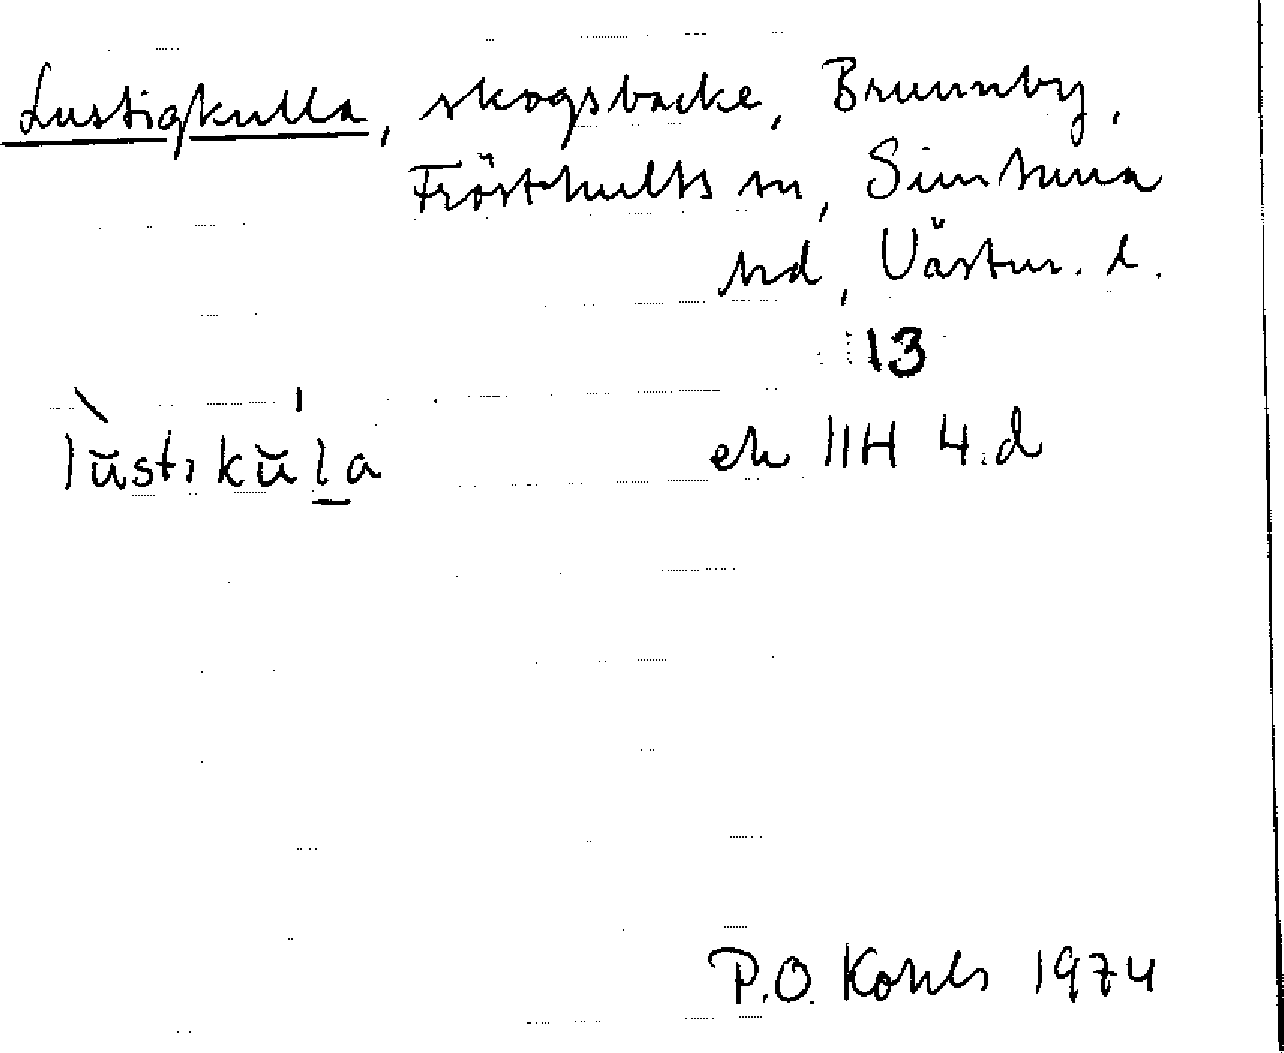 Lustigkulla, skogsbacke, Brunnby,
Frösthults sn, Simtuna
hd, Västm. l.
13
lŭstɩkŭl̲a
ek 11H 4.d
P.O. Kohls 1974